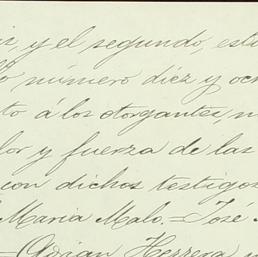 y el segundo, est
número diez y och
to á los otorgantes, n
lor y fuerza de las
con dichos testigos
Maria Malo.=José
=Adrian Herrera y